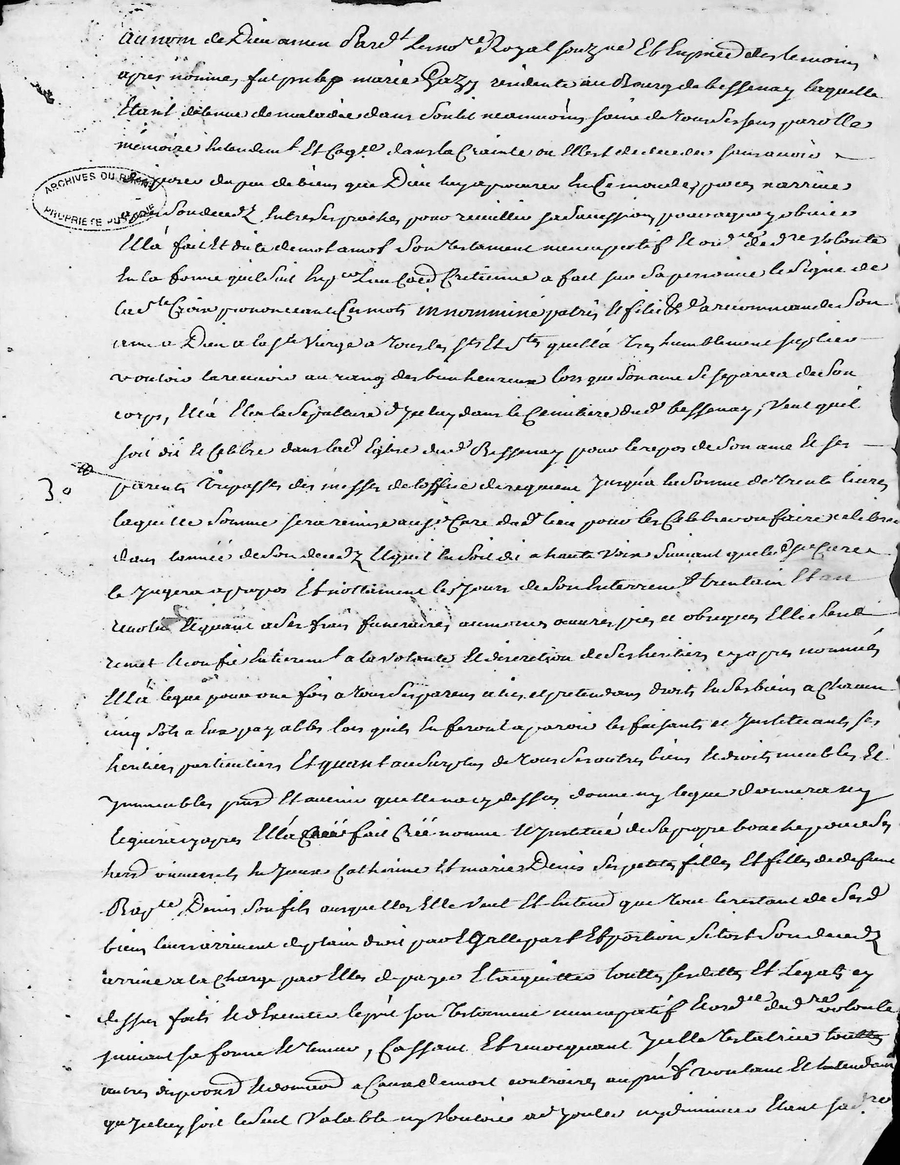 au nom de Dieu amen Pard.t le no.re Royal souz.ne Et En pnce des temoins
apres nommes fut pnte marie Gazy residente au Bourg de bessenay laquelle
Etant detenue de maladie dans son lit neanmoins saine de tous ses sens parolle
mémoire Entendem.t Et Cog.ce dans la Crainte ou Elle est de deceder sans avoir
disposer du peu de biens que Dieu luy a procurer En Ce monde, proces n'arrive
apres son decedz Entre ses proches, pour receuillir sa succession pour aquoy obvier
Ella fait Et dicté de mot a mot Son testament nuncupatif Et ord.ce de d.re volonté
En la forme qui suit En p.er lieu Co.e Cretienne a fait sur sa personne le Signe de
la S.te Croix prononceant Ces mots in nommine patris Et filii &.a a recommandé Son
ame a Dieu a la S.te Vierge a tous les S.ts Et S.tes quella tres humblement suplier
vouloir la recevoir au rang des bienheureux lors que son ame se separera de son
corps, Ella Elu la Sepulture d'yceluy dans le Cemitiere dud. bessenay, Veut quil
soit dit Et Celebré dans lad. Eglise dud. Bessenay pour le repos de son ame Et ses
30
parents trepassés des messes de l'office de requiem jusqu'a la Somme de trente livres
laquelle Somme sera remise au s.r Curé dud. lieu pour les Celebrer ou faire celebrer
dans l'année de son decedz Et quil En Soit dit a haute Voix Suivant que led. s.r Curé
le jugera apropos Et nottament les jours de son Enterrem.t trentain Et an
revolu Et quant a Ses frais funeraires aumones oeuvres pies et obseques Elle s'en
remet Et confie Entierem.t a la volonté Et discretion de Ses heritiers cy apres nommés
Ella legue pour une fois a tous Ses parens alies et pretendans droits En Ses biens a Chacun
cinq Sols a Eux payables lors quils En feront aparoir les faisants et Instituants Ses
heritiers particuliers Et quant au Surplus de tous Ses autres biens Et droits meubles Et
Immeubles pnts Et avenir quelle na cy dessus donné ny legué donnera ny
leguera cy apres Ella fait Créé nommé Et Institué de Sa propre bouche pour Ses
hers universels En Jeux Catherine Et marie Denis Ses petites filles Et filles de deffunt
Bap.te Denis Son fils auxquelles Elle Veut Et Entend que tout le restant de Sesd.
biens leurs arrivent de plain droit par Egalle part Et portion Si tost Son decedz
arrivé a la Charge par Elles de payer Et aquitter touttes Ses dettes Et Legats cy
dessus faits Et d'Executer le pnt son testament nuncupatif Et ord.ce de d.re volonté
suivant sa forme Et teneur, Cassant Et revocquant ycelle testatrice touttes
autres dispons Et donnons a Cause de mort contraires au pnt voulant Et Entendant
qu'yceluy soit le Seul Valable ny Vouloir adjouter ny diminuer Etant sa d.re
ARCHIVES DU RHONE
PROPRIETE PUBLIQUE